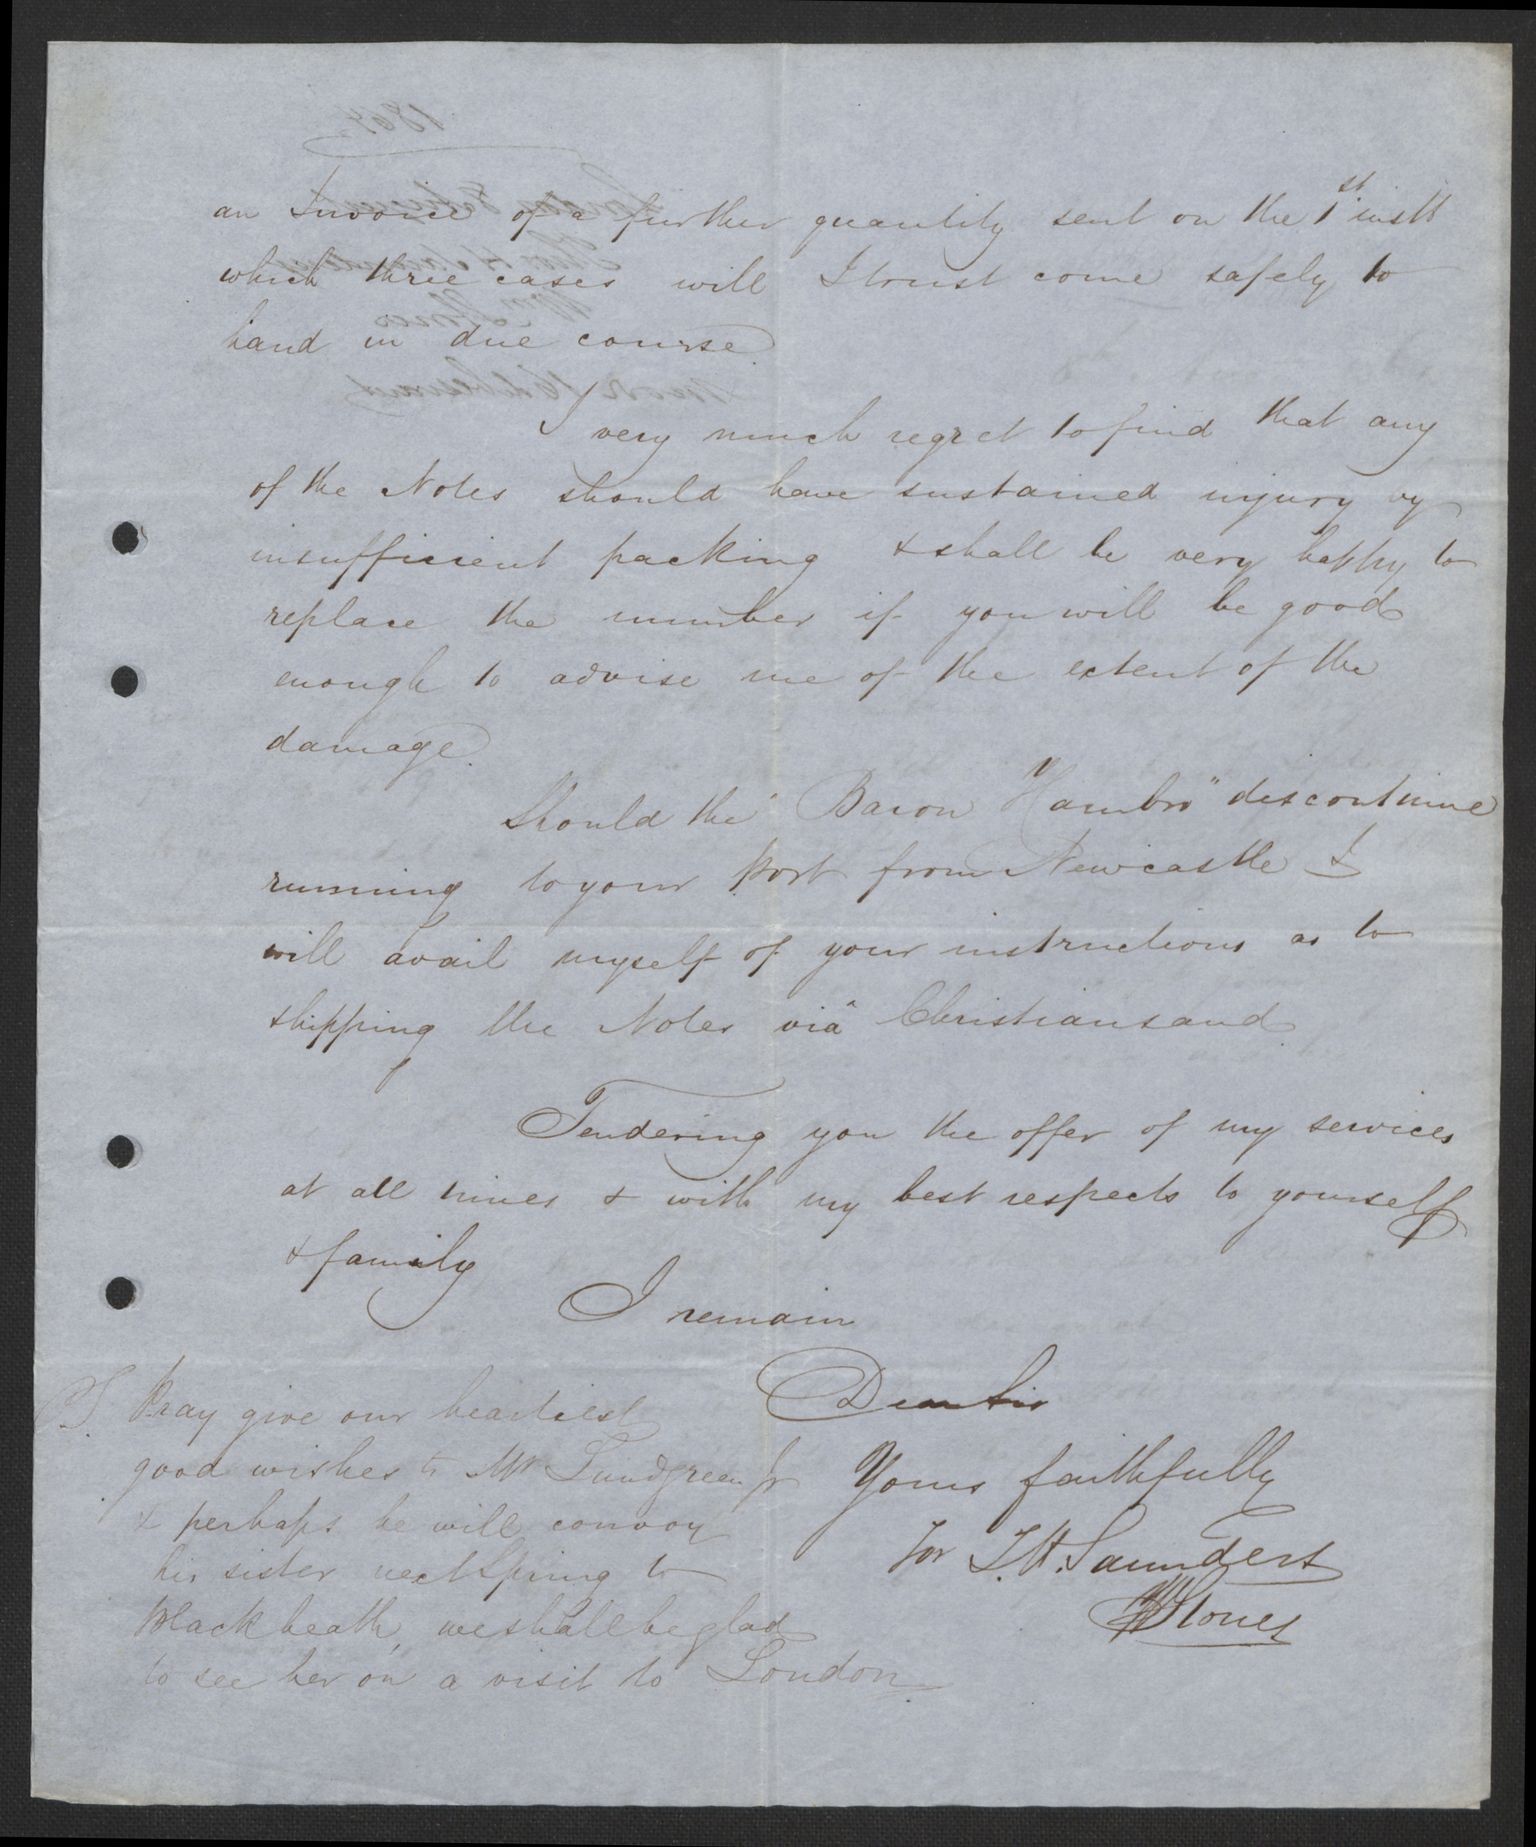 an Invoice of a further quantity sent on the 1st instt
which three cases will I trust come safely to
hand in due course
I very much regret to find that any
of the Notes should have sustained injury by
insufficient packing & shall be very happy to
replace the number if you will be good
enough to advise me of the extent of the
damage.
Should the "Baron Hambro" discontinue
running to your port from Newcastle I
will avail myself of your instructions as to
shipping the Notes viâ Christiansand
Tendering you the offer of my services
at all times & with my best respects to yourself
& family
I remain
Dear Sir
Yours faithfully
for T.H. Saunders
W Stones
PS. Pray give our heartiest
good wishes to Mr Lundgreen Jr
& perhaps he will convoy
his sister next Spring to
Blackheath, we shall be glad
to see her on a visit to London